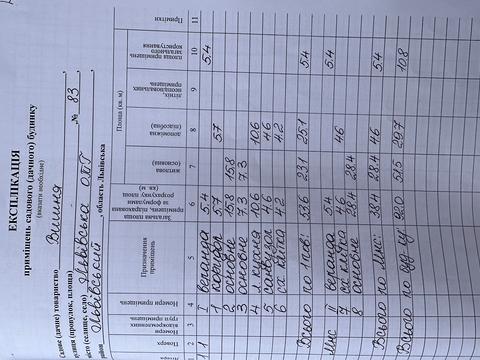 ЕКСПЛІКАЦІЯ
приміщень садового (дачного) будинку
(вказати необхідне)
Садове (дачне) товариство Вишня,
вулиця (провулок, площа) № 83,
місто (селище, село) Львівська ОТГ,
район Львівський, область Львівська
Літера
Поверх
Номери відокремлених груп приміщень
Номери приміщень
Призначення приміщень
Загальна площа приміщень, підрахована за формулами розрахунку площ (кв. м)
Площа (кв. м)
житлова (основна)
допоміжна (підсобна)
літніх, неопалювальних приміщень
площа приміщень загального користування
Примітки
1 2 3 4 5 6 7 8 9 10 11
1 1 I веранда 5.4 5.4
1 коридор 5.7 5.7
2 основне 15.8 15.8
3 основне 7.3 7.3
4 л. кухня 10.6 10.6
5 санвузол 4.6 4.6
6 сх. клітка 4.2 4.2
Всього по 1 пов: 53.6 23.1 25.1 5.4
манс II веранда 5.4 5.4
7 сх. клітка 4.6 4.6
8 основне 28.4 28.4
Всього по манс: 38.4 28.4 4.6 5.4
Всього по буд-ку: 92.0 51.5 29.7 10.8